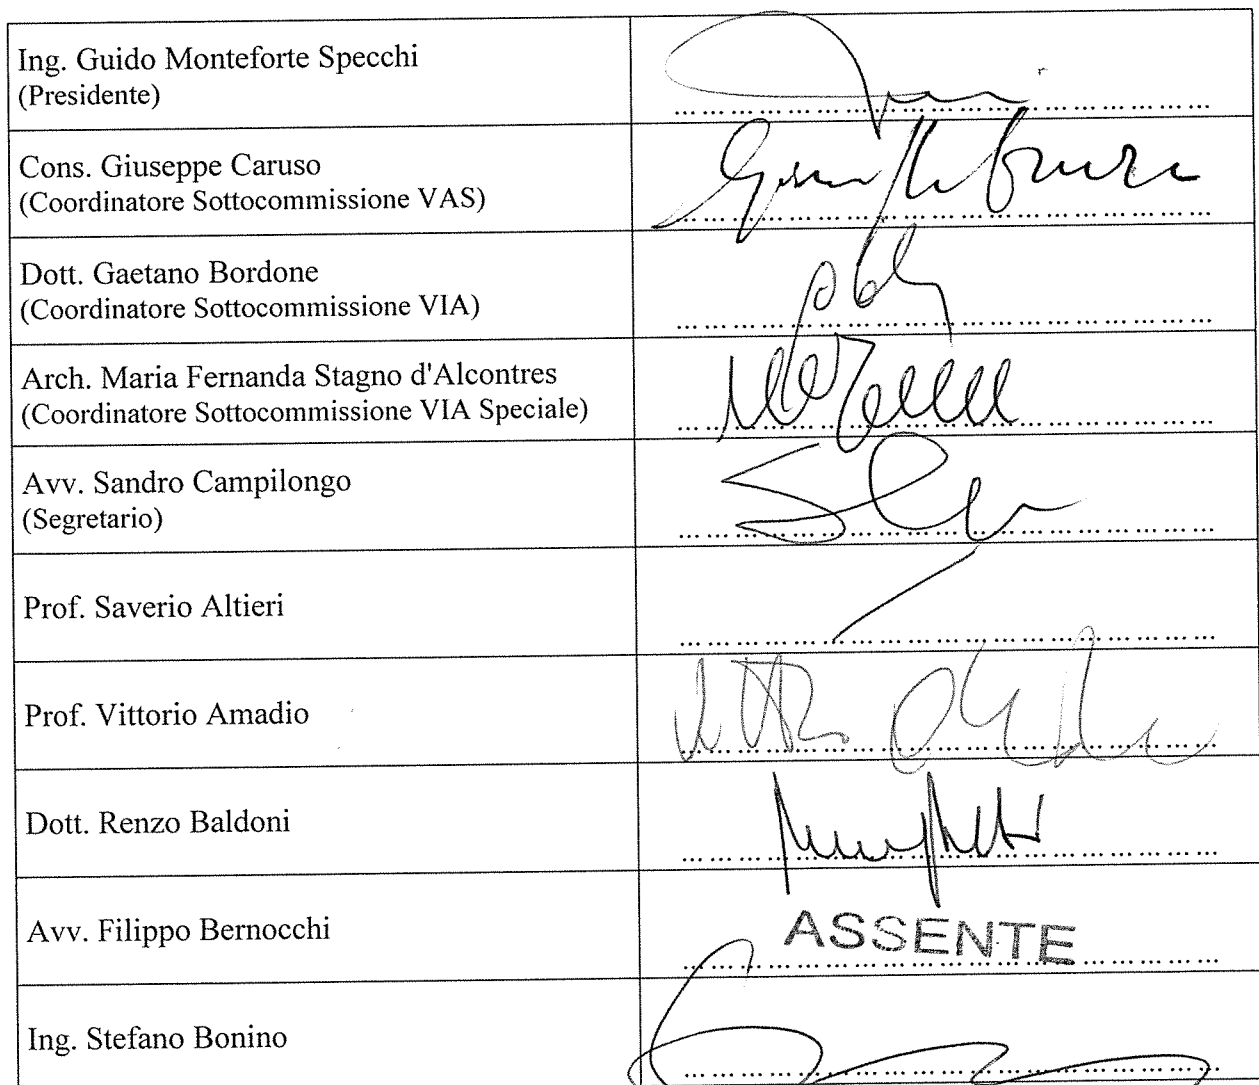 Ing. Guido Monteforte Specchi
(Presidente)
Cons. Giuseppe Caruso
(Coordinatore Sottocommissione VAS)
Dott. Gaetano Bordone
(Coordinatore Sottocommissione VIA)
Arch. Maria Fernanda Stagno d'Alcontres
(Coordinatore Sottocommissione VIA Speciale)
Avv. Sandro Campilongo
(Segretario)
Prof. Saverio Altieri
Prof. Vittorio Amadio
Dott. Renzo Baldoni
Avv. Filippo Bernocchi
ASSENTE
Ing. Stefano Bonino